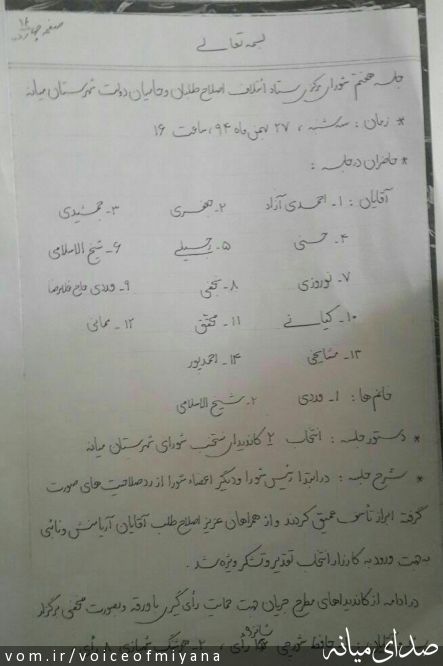 صفحه چهارده
۱۴
بسمه تعالی
جلسه هفتم شورای مرکزی ستاد ائتلاف اصلاح طلبان و حامیان دولت شهرستان میانه
* زمان : سه شنبه ، ۲۷ بهمن ماه ۹۴ ، ساعت ۱۶
* حاضران در جلسه :
آقایان : ۱- احمدی آزاد ۲- ۳- جمشیدی
۴- حسنی ۵- ۶- شیخ الاسلامی
۷- نوروزی ۸- نجفی ۹- وردی حاج غلامرضا
۱۰- کیانی ۱۱- محقق ۱۲- ممانی
۱۳- مشایخی ۱۴- احمدپور
خانم ها : ۱- وردی ۲- شیخ الاسلامی
* دستور جلسه : انتخاب ۲ کاندیدای منتخب شورای شهرستان میانه
* شرح جلسه : در ابتدا رئیس شورا و دیگر اعضاء شورا از رد صلاحیت های صورت
گرفته ابراز تأسف عمیق کردند و از همراهان عزیز اصلاح طلب آقایان آریامنش و نائبی
به جهت ورود به کارزار انتخاب تقدیر و تشکر ویژه شد .
در ادامه از کاندیداهای مطرح جریان جهت حمایت رأی گیری با ورقه و بصورت مخفی برگزار
شانزده
رأی ، ۲- شهبازی ۸ رأی
صدای میانه
vom.ir/voiceofmiyana